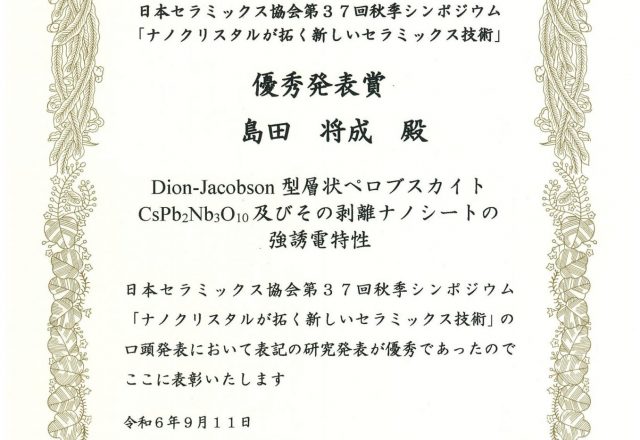 日本セラミックス協会第３７回秋季シンポジウム
「ナノクリスタルが拓く新しいセラミックス技術」
優秀発表賞
島田　将成　殿
Dion-Jacobson 型層状ペロブスカイト
CsPb₂Nb₃O₁₀及びその剥離ナノシートの
強誘電特性
日本セラミックス協会第３７回秋季シンポジウム
「ナノクリスタルが拓く新しいセラミックス技術」の
口頭発表において表記の研究発表が優秀であったので
ここに表彰いたします
令和６年９月１１日